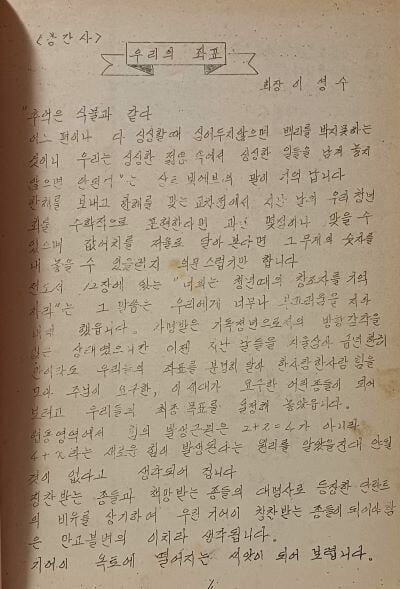 <봉간사>
우리의 좌표
회장 이 성 수
"추억은 식물과 같다
어느 편이나 다 싱싱할때 심어두지않으면 뿌리를 박지못하는
것이니 우리는 싱싱한 젊음 속에서 싱싱한 일들을 남겨 놓지
않으면 안된다"는 샨트 빅에브의 말이 기억 납니다
한해를 보내고 한해를 맞는 교차점에서 지난 날의 우리 청년
회를 수학적으로 표현한다면 과연 몇점이나 맞을 수
있으며 값어치를 저울로 달아 본다면 그 무게의 숫자를
내 놓을 수 있을런지 의문스럽기만 합니다
전도서 12장에 있는 "너희는 청년때의 창조자를 기억
하라"는 그 말씀은 우리에게 너무나 부끄러움을
했읍니다. 사명받은 기독청년으로서의 방향감각을
잃은 상태였으니깐 어쩐 지난 날들을 거울삼아 금년 한해
만이라도 우리들의 좌표를 분명히 알아 한사람한사람 힘을
모아 주님이 요구한, 이 세대가 요구한 어린종들이 되어
보려고 우리들의 최종 목표를 설정해 놓았읍니다.
힘의 발생근원은 2+2=4가 아니라
4+X라는 새로운 힘이 발생된다는 원리를 알았을진대 안될
것이 없다고 생각되어 집니다
칭찬받는 종들과 책망받는 종들의 대명사로 등장한 달란트
의 비유를 상기하며 우린 기어이 칭찬받는 종들이 되어야 함
은 만고불변의 이치라 생각됩니다.
기어이 옥토에 떨어지는 씨앗이 되어 보렵니다.